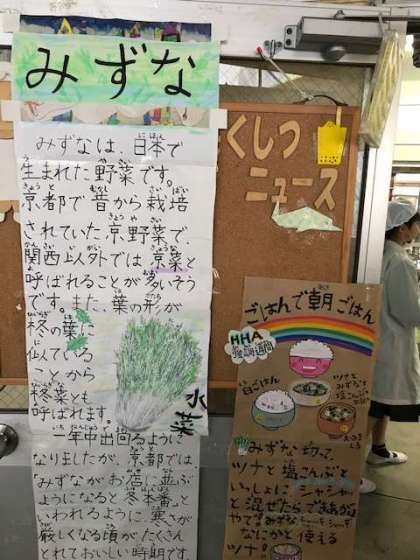 みずな
みずなは、日本で
生まれた野菜です。
京都で昔から栽培
されていた京野菜で、
関西以外では京菜と
呼ばれることが多いそう
です。また、葉の形が
柊の葉に
似ている
ことから
柊菜とも
呼ばれます。
水菜
一年中出回るように
なりましたが、京都では
「みずながお店に並ぶ
ようになると冬本番」と
いわれるように、寒さが
厳しくなる頃が、たくさん
とれておいしい時期です
くしつ
ニュース
ごはんで朝ごはん
白ごはん
ツナと
みずなと
塩こんぶ
みずな切って、
ツナと塩こんぶと
いっしょに シャシャッ
と混ぜたらできあがり
なにかと使える
ツナ。